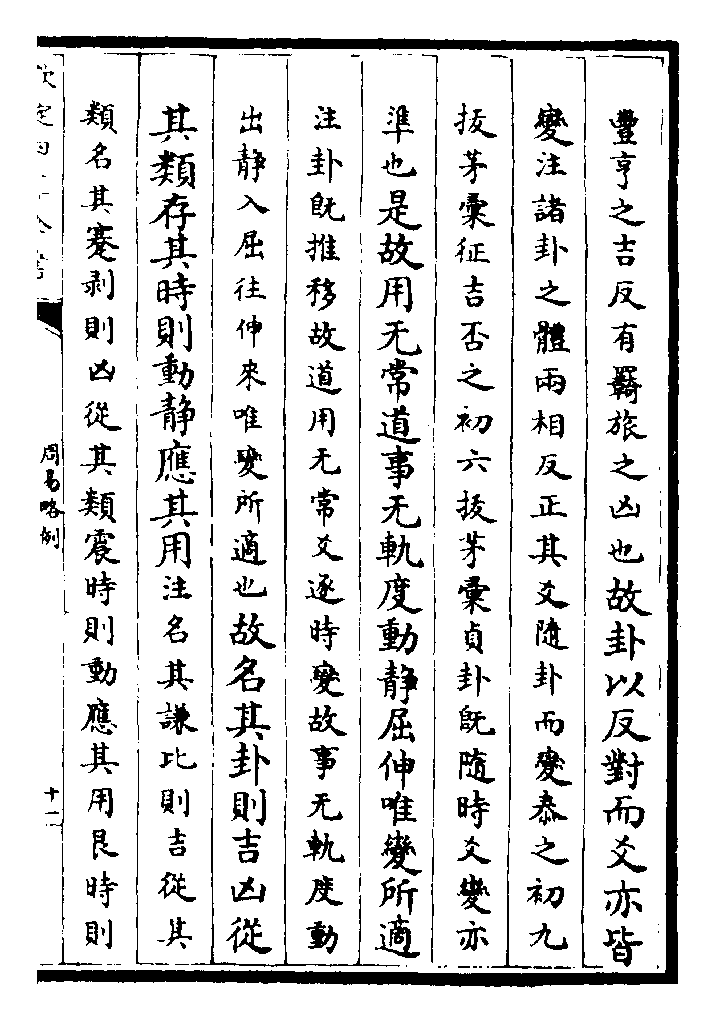 豐亨之吉反有羇旅之凶也故卦以反對而爻亦皆
變注諸卦之體兩相反正其爻隨卦而變泰之初九
拔茅彙征吉否之初六拔茅彙貞卦旣隨時爻變亦
準也是故用无常道事无軌度動静屈伸唯變所適
注卦旣推移故道用无常爻逐時變故事无軌度動
出静入屈往伸來唯變所適也故名其卦則吉凶從
其類存其時則動静應其用注名其謙比則吉從其
類名其蹇剥則凶從其類震時則動應其用艮時則
欽定四庫全書
周易略例
十二